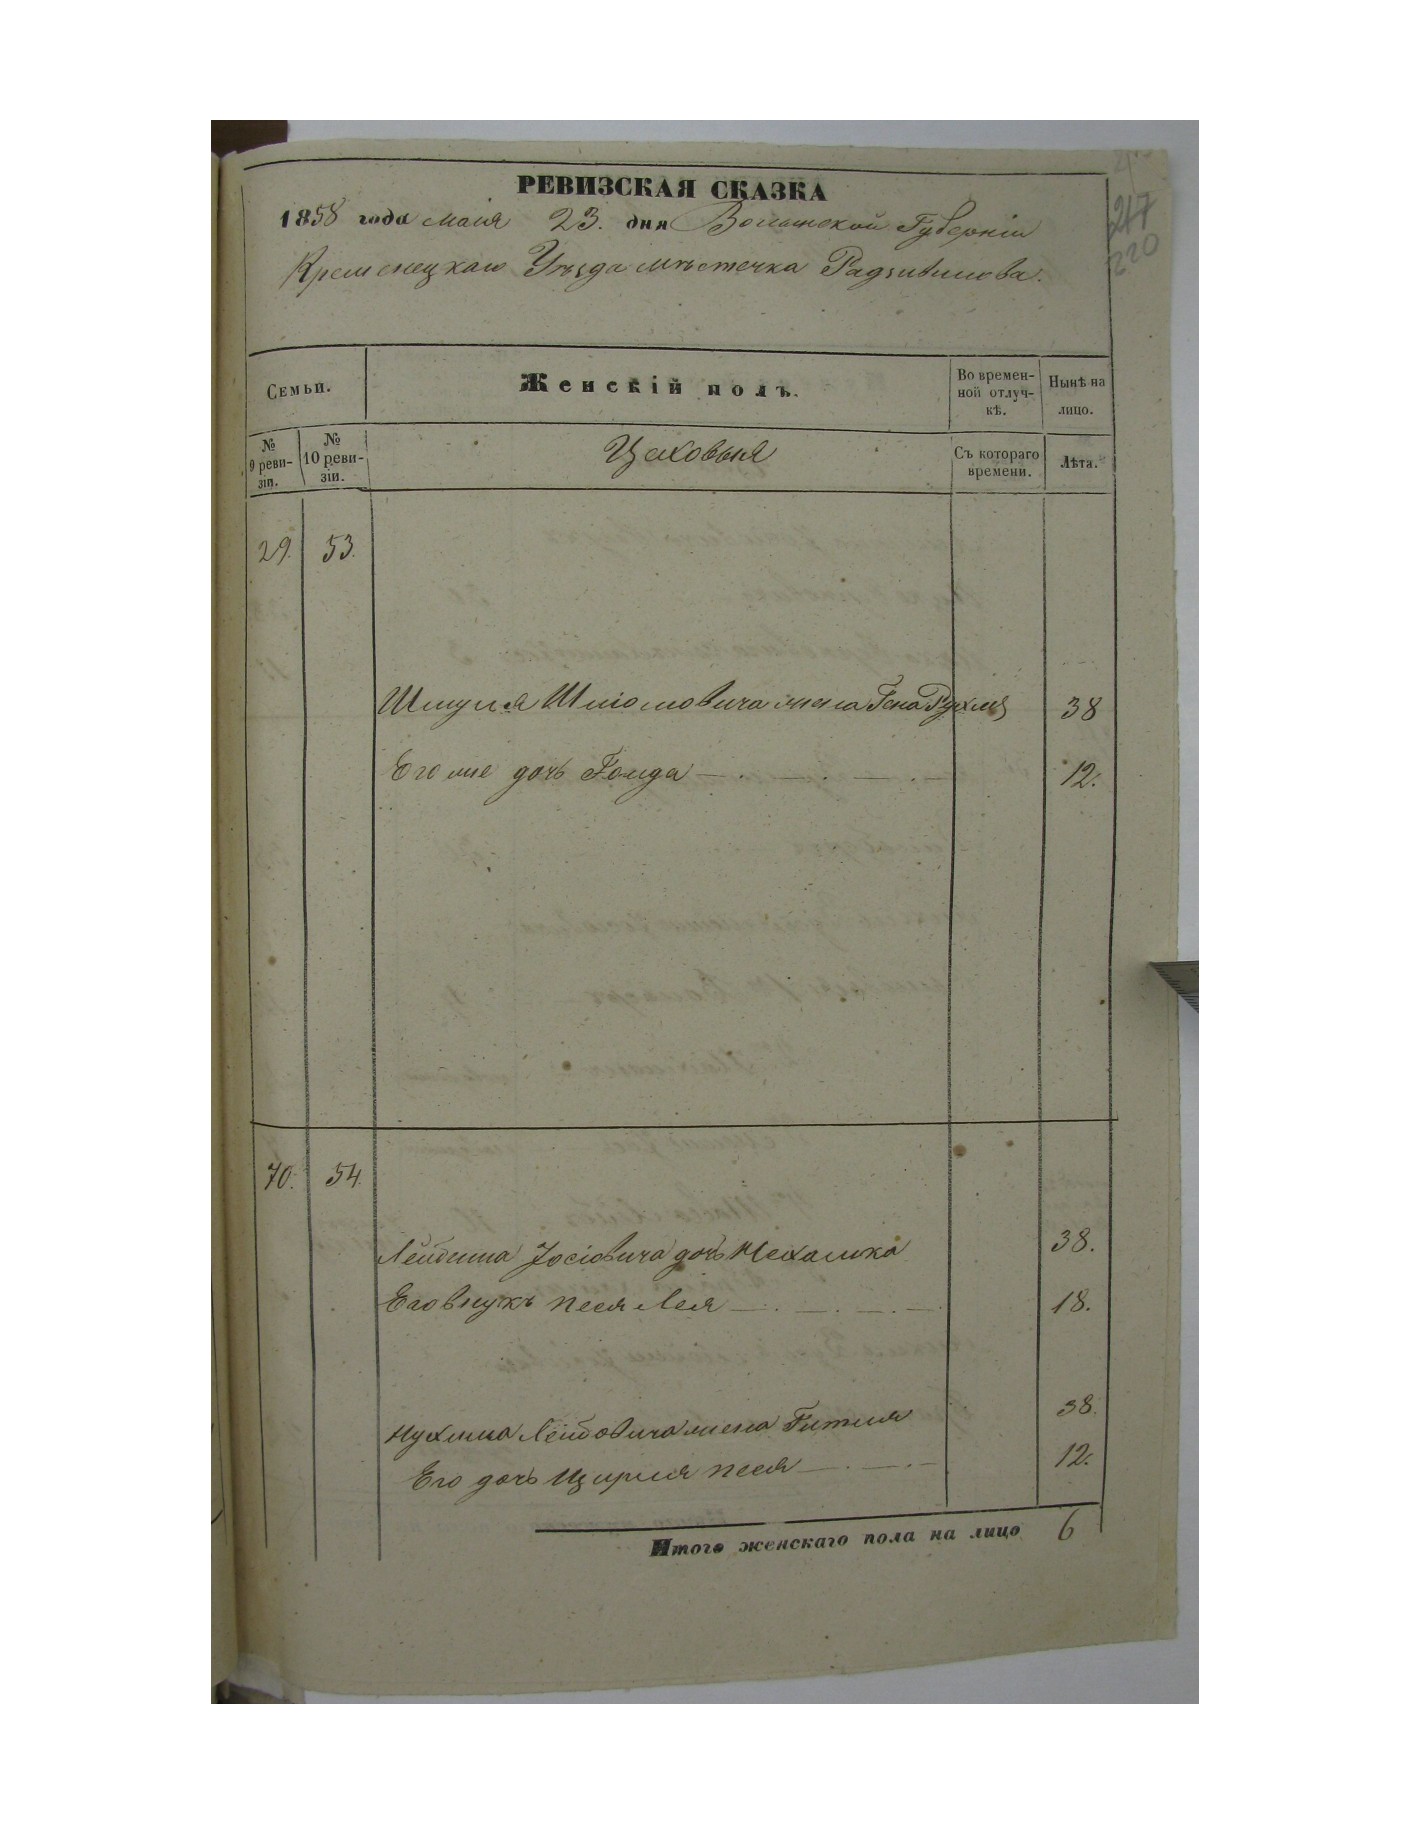 РЕВИЗСКАЯ СКАЗКА
1858 года маія 23. дня Волынской Губерніи
Кременецкаго Уѣзда мѣстечка Радзивилова.
217
220
Семьи.
Женскій полъ.
Во времен-
ной отлуч-
кѣ.
Нынѣ на
лицо.
№
9 реви-
зіи.
№
10 реви-
зіи.
Цеховыя
Съ котораго
времени.
Лѣта.
29. 53.
Шмуля Шліомовича жена Гена Рухля 38
Его же дочь Голда 12.
70. 54.
Лейбиша Іосіовича дочь Нехамка 38.
Его внукъ Песя Лея 18.
Нухима Лейбовича жена Гитля 38.
Его дочь Цирля Песя 12.
Итого женскаго пола на лицо 6